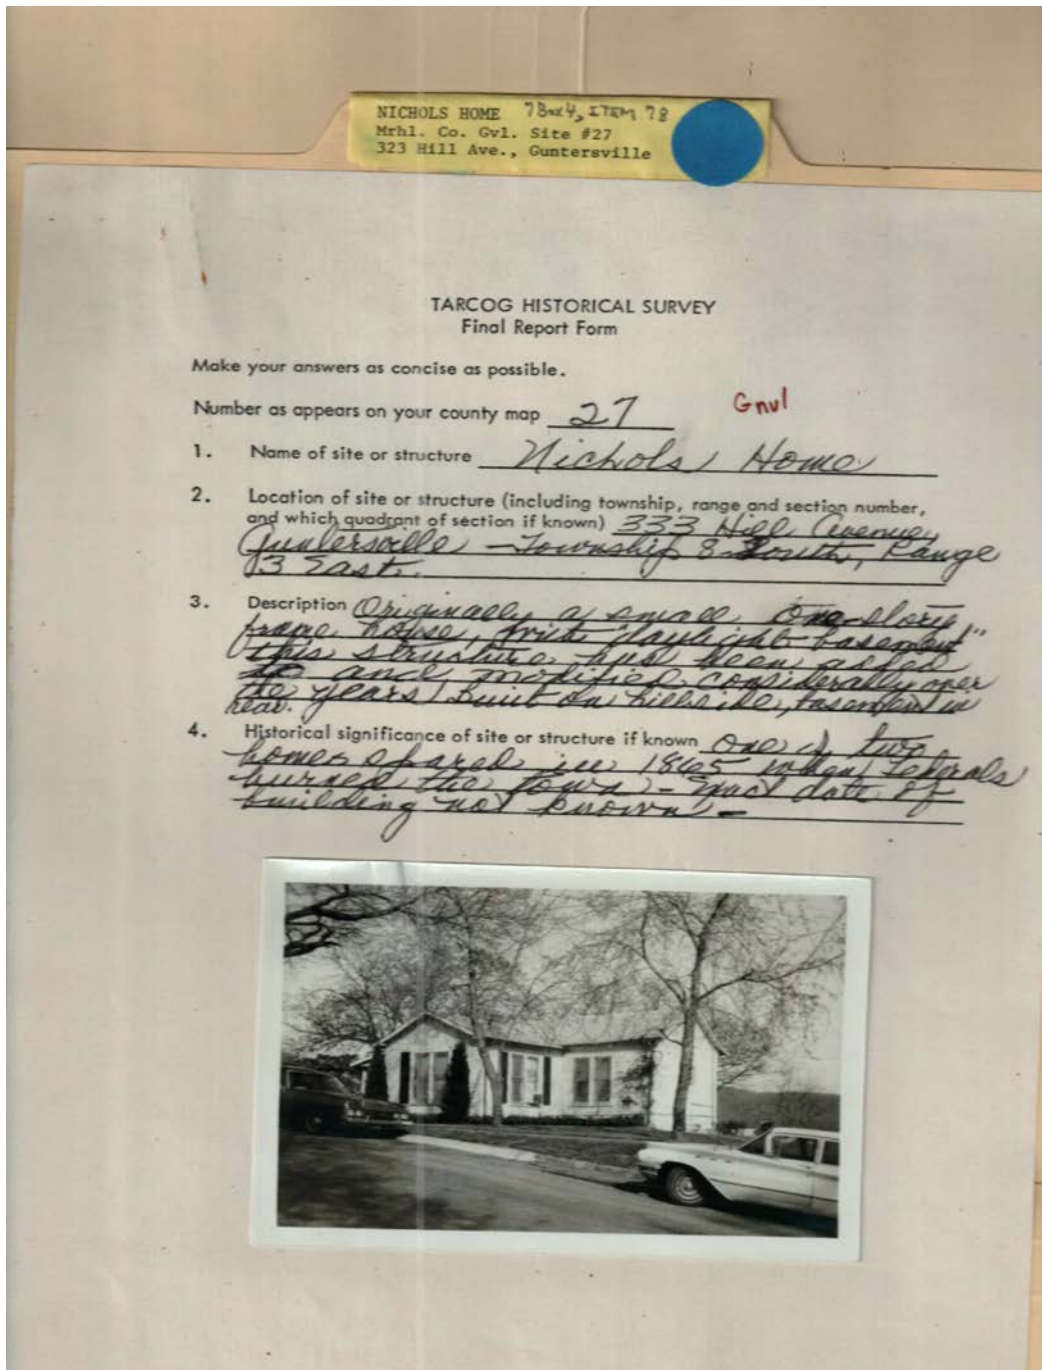 NICHOLS HOME 7 Box 4, ITEM 78
Mrhl. Co. Gvl. Site #27
323 Hill Ave., Guntersville
TARCOG HISTORICAL SURVEY
Final Report Form
Make your answers as concise as possible.
Number as appears on your county map 27 Gnvl
1. Name of site or structure Nichols Home
2. Location of site or structure (including township, range and section number,
and which quadrant of section if known) 333 Hill Avenue,
Guntersville - Township 8 South, Range
3 East.
3. Description Originally a small one-story
frame house, brick daylight basement"
this structure has been added
to and modified considerably over
the years. Built on hillside, basement in
rear.
4. Historical significance of site or structure if known One of two
homes spared in 1865 when Federals
burned the town - Exact date of
building not known -